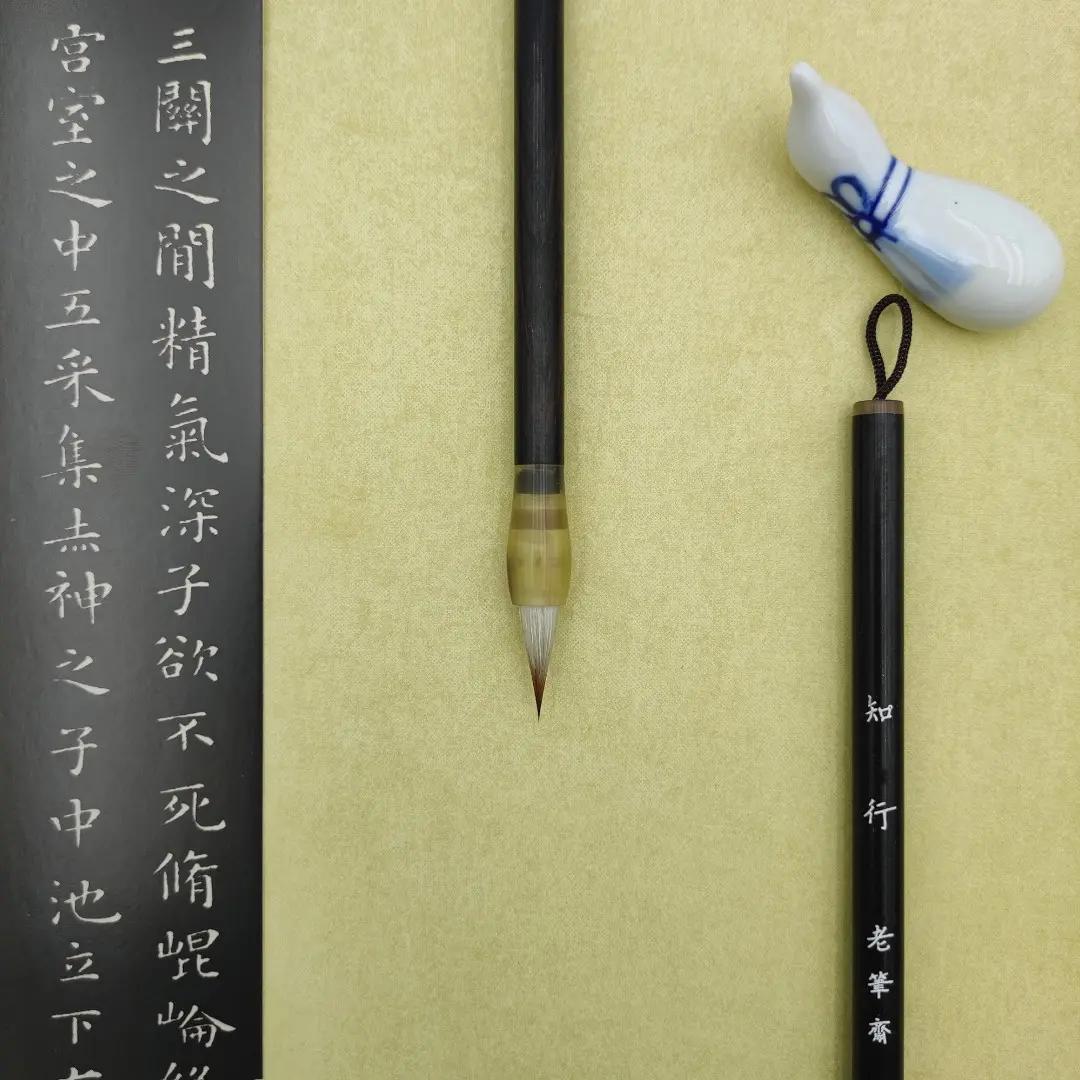 三關之閒精氣深子欲不死脩崐崘
宮室之中五采集赤神之子中池立下
知行
老筆齋